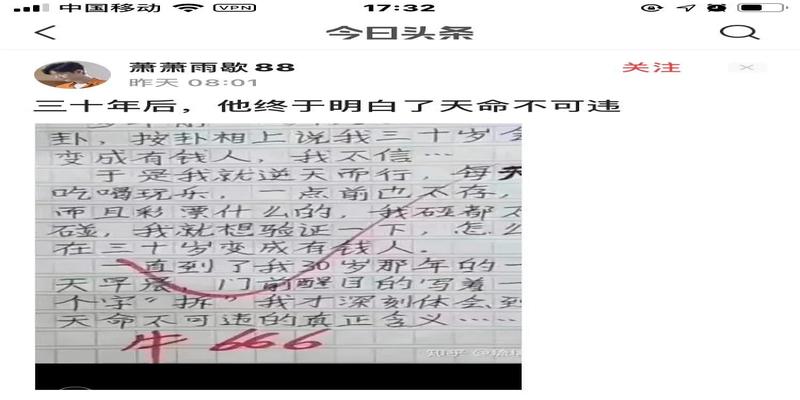 中国移动 VPN 17:32
今日头条
萧萧雨歇88
昨天 08:01
关注
三十年后，他终于明白了天命不可违
卦，按卦相上说我三十岁会
变成有钱人，我不信…
于是我就逆天而行，每天
吃喝玩乐，一点前也不存，
而且彩票什么的，我碰都不
碰，我就想验证一下，怎么
在三十岁变成有钱人。
一直到了我30岁那年的一
天早晨，门前醒目的写着一
个字“拆”我才深刻体会到
天命不可违的真正含义……
牛 666
知乎